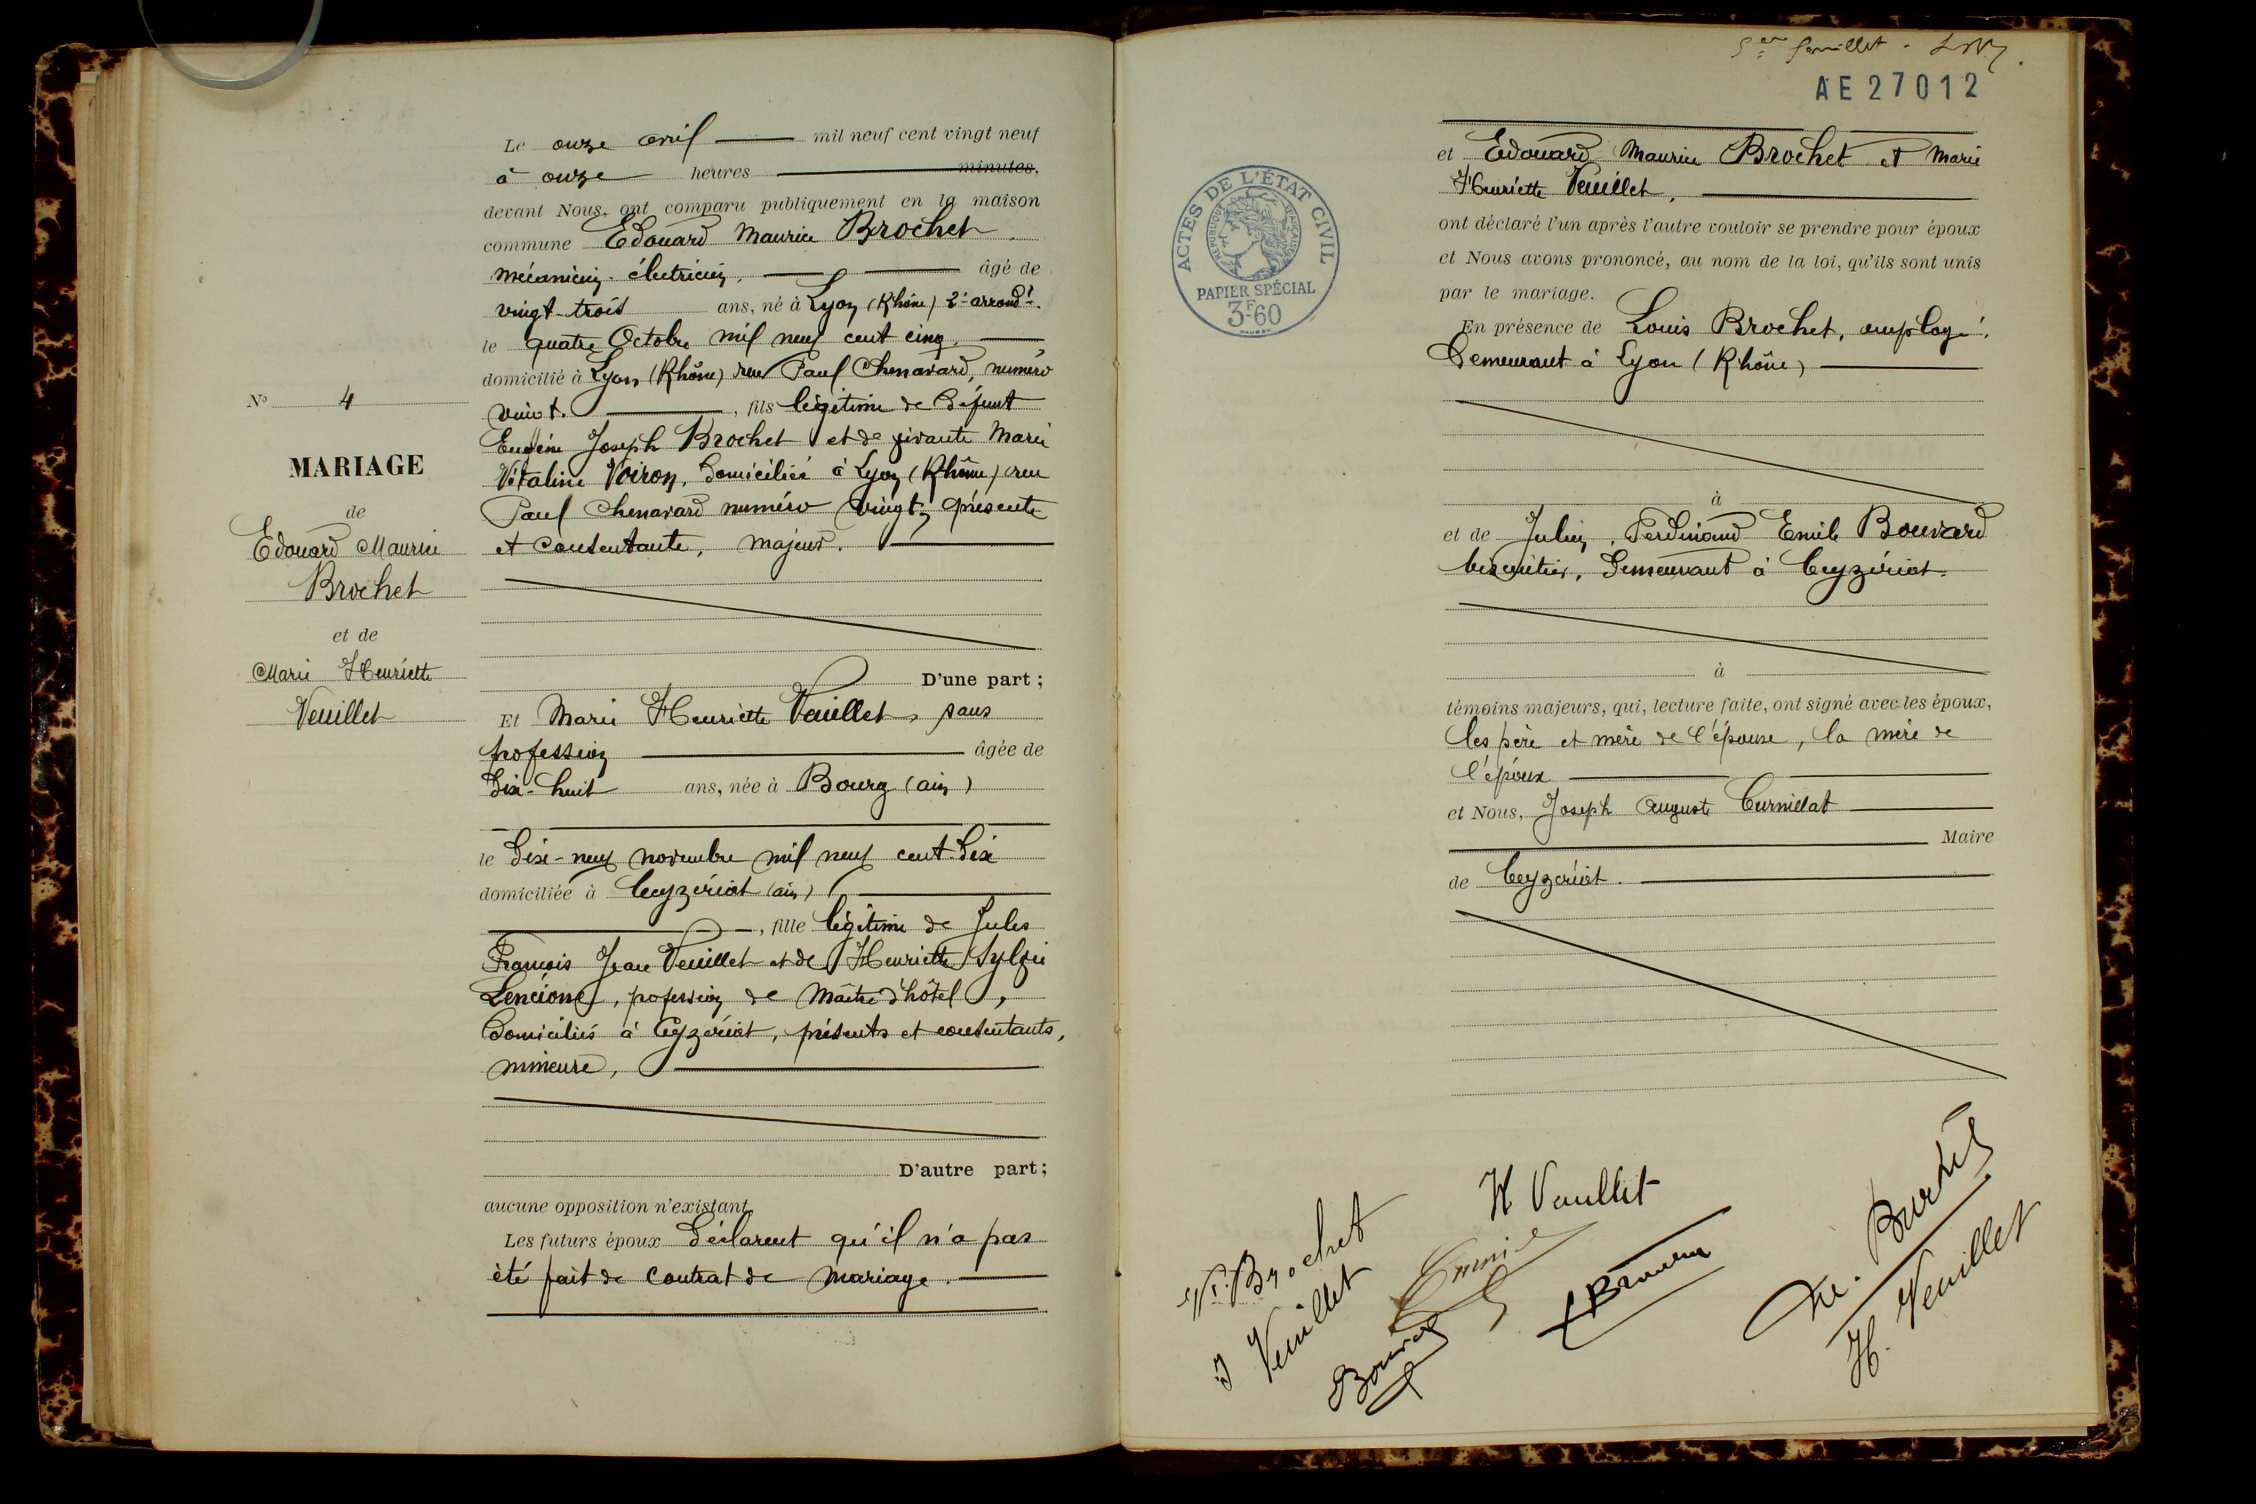 Le onze avril mil neuf cent vingt neuf
à onze heures minutes,
devant Nous, ont comparu publiquement en la maison
commune Edouard Maurice Brochet
mécanicien-électricien, âgé de
vingt-trois ans, né à Lyon (Rhône) 2e arrondt.
le quatre Octobre mil neuf cent cinq,
domicilié à Lyon (Rhône) rue Paul Chenavard, numéro
vingt, fils légitime de défunt
Eugène Joseph Brochet et de vivante Marie
Vitaline Voiron, domiciliée à Lyon (Rhône) rue
Paul Chenavard numéro vingt, présente
et consentante, majeur.
No 4
MARIAGE
de
Edouard Maurice
Brochet
et de
Marie Henriette
Veuillet
D'une part;
Et Marie Henriette Veuillet, sans
profession âgée de
dix-huit ans, née à Bourg (ain)
le dix-neuf novembre mil neuf cent dix
domiciliée à Ceyzériat (ain)
, fille légitime de Jules
François Jean Veuillet et de Henriette Sylvie
Lencione, profession de Maître d'hôtel,
domiciliés à Ceyzériat, présents et consentants,
mineure,
D'autre part;
aucune opposition n'existant
Les futurs époux déclarent qu'il n'a pas
été fait de contrat de mariage.
5em feuillet.
AE27012
ACTES DE L'ÉTAT CIVIL
RÉPUBLIQUE FRANÇAISE
PAPIER SPÉCIAL
3F60
et Edouard Maurice Brochet et Marie
Henriette Veuillet,
ont déclaré l'un après l'autre vouloir se prendre pour époux
et Nous avons prononcé, au nom de la loi, qu'ils sont unis
par le mariage.
En présence de Louis Brochet, employé,
demeurant à Lyon (Rhône)
à
et de Julien, Ferdinand Emile Bouvard
biscuitier, demeurant à Ceyzériat.
à
témoins majeurs, qui, lecture faite, ont signé avec les époux,
les père et mère de l'épouse, la mère de
l'époux
et Nous, Joseph Auguste Curnillat
Maire
de Ceyzériat.
H Veuillet
Vve Brochet
J Veuillet
Bouvard
Brochet
H. Veuillet